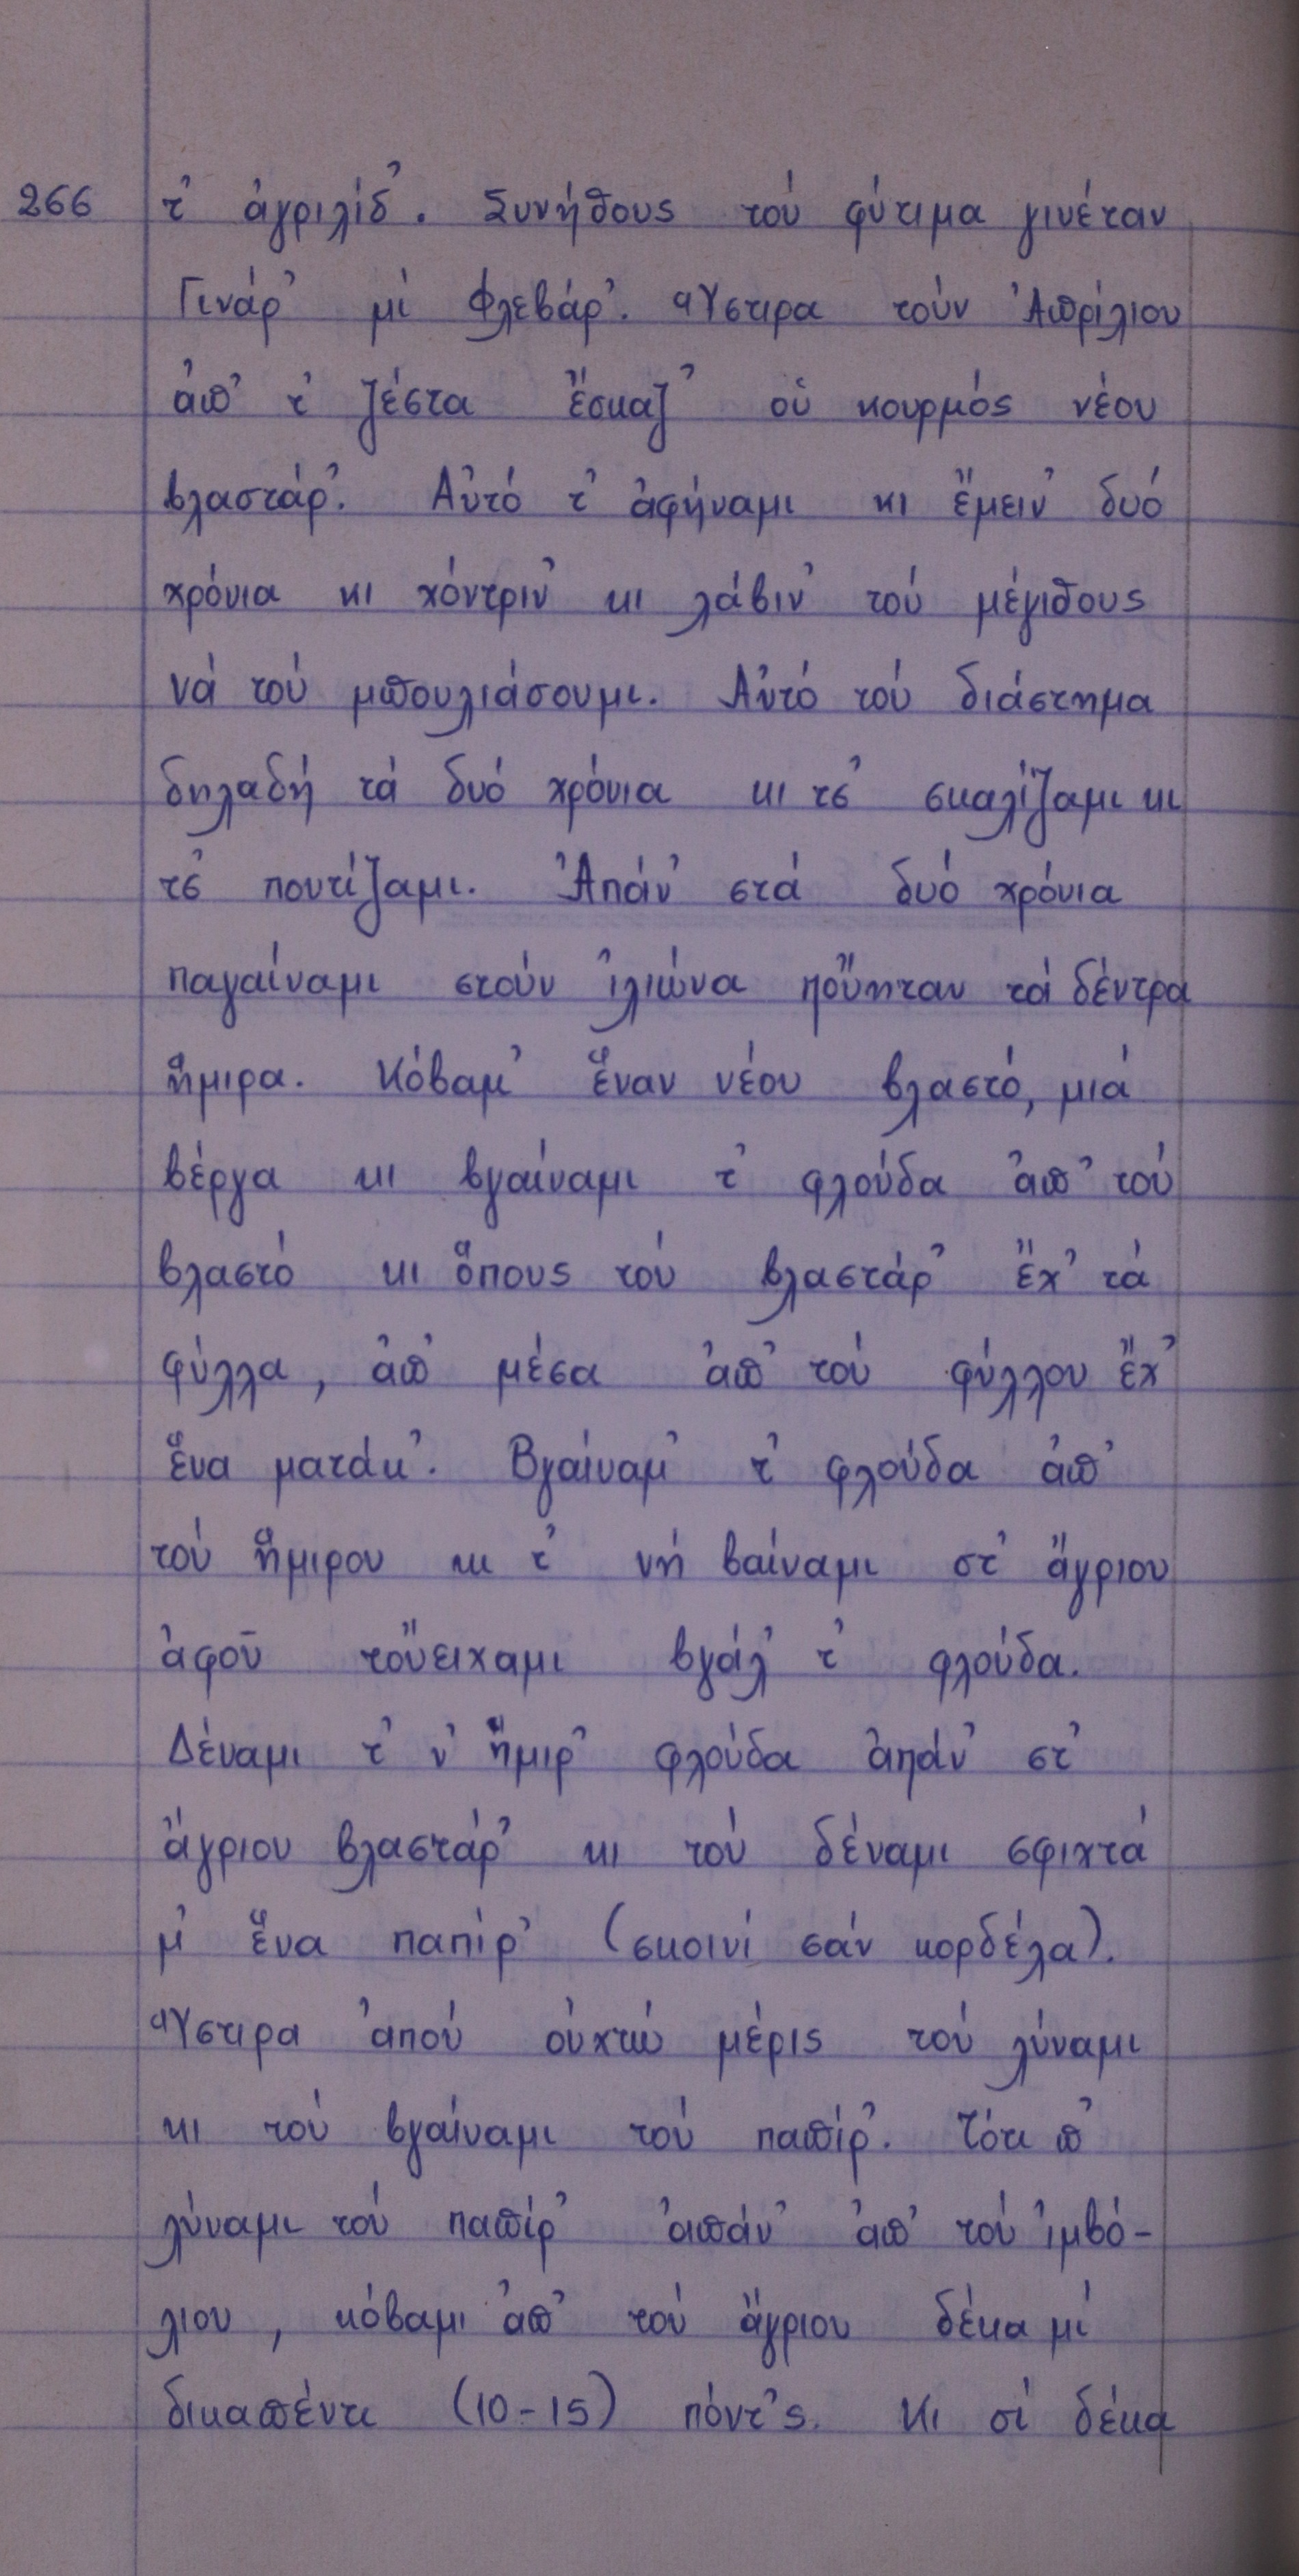 266 τ' ἀγριλίδ'. Συνήθους τού φύτιμα γινέταν
Γινάρ' μί Φλεβάρ'. Ὕστιρα τούν Ἀπρίλιου
ἀπ' τ' ζέστα ἔσκαζ' οὑ κουρμός νέου
βλαστάρ'. Αὐτό τ' ἀφήναμι κι ἔμειν' δυό
χρόνια κι χόντριν' κι λάβιν' τού μέγιθους
νά τού μπουλιάσουμι. Αὐτό τού διάστημα
δηλαδή τά δυό χρόνια κι τσ' σκαλίζαμι κι
τσ' ποντίζαμι. Ἀπάν' στά δυό χρόνια
παγαίναμι στούν ἰλιώνα πoὔηταν τά δέντρα
ἥμιρα. Κόβαμ' ἕναν νέου βλαστό, μιά
βέργα κι βγαίναμι τ' φλούδα ἀπ' τού
βλαστό κι ὅπους τού βλαστάρ' ἔχ' τά
φύλλα, ἀπ' μέσα ἀπ' τού φύλλου ἔχ'
ἕνα ματάκ'. Βγαίναμ' τ' φλούδα ἀπ'
τού ἥμιρου κι τ' νή βαίναμι στ' ἄγριου
ἀφοῦ τοὔειχαμι βγάλ' τ' φλούδα.
Δέναμι τ' ν' ἥμιρ' φλούδα ἀπάν' στ'
ἄγριου βλαστάρ' κι τού δέναμι σφιχτά
μ' ἕνα παπίρ' (σκοινί σάν κορδέλα).
Ὕστιρα ἀπού οὑχτώ μέρις τού λύναμι
κι τού βγαίναμι τού παπίρ'. Τότι π'
λύναμι τού παπίρ' ἀπάν' ἀπ' τού ἰμβό-
λιου, κόβαμι ἀπ' τού ἄγριου δέκα μί
δικαπέντι (10-15) πόντ'ς. Κι σί δέκα